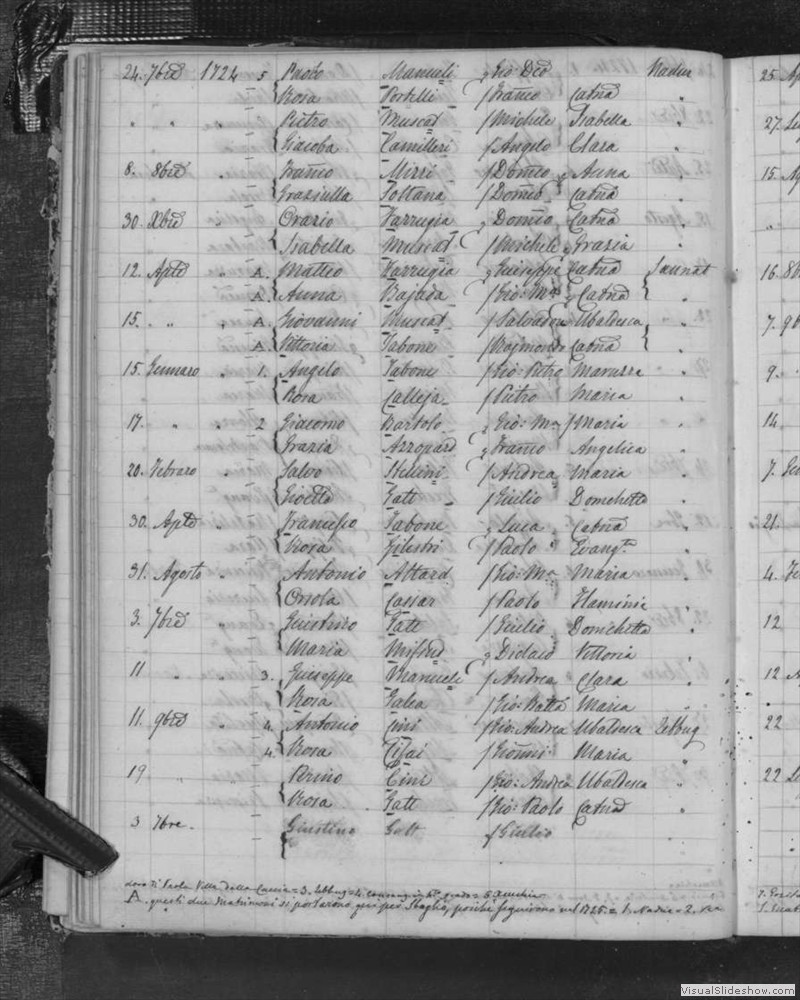 24. 7bre 1724 5 Paolo Manueli q Gio Deo Nadur
Rosa Portelli f Franco Catna "
" " " Pietro Muscat f Michele Isabella "
Giacoba Camilleri f Angelo Clara "
8. 8bre " Franco Mizzi f Domco q Anna "
Graziulla Fottana f Domco Catna "
30. Xbre " Orazio Farrugia q Domco Catna "
Isabella Muscat f Michele Grazia "
12. Aple " A. Matteo Farrugia q Giuseppe Catna Sannat
A. Anna Bajada f Gio: Ma q Catna "
15. " " A. Giovanni Muscat f Salvatore Ubaldesca "
A. Vittoria Tabone f Rajmondo Catna "
15. Gennaro " 1. Angelo Tabone f Gio: Pietro Maruzza "
Rosa Calleja f Pietro Maria "
17. " " 2 Giacomo Bartolo q Gio: Ma f Maria "
Grazia Azzopard q Franco Angelica "
20. Febraro " Salvo Stellini f Andrea Maria "
Gatt f Giulio Domchetta "
30. Aple " Francesco Tabone q Luca Catna "
Rosa Silestri f Paolo Evangta "
31. Agosto " Antonio Attard f Gio: Ma Maria "
Orsola Cassar f Paolo Flaminia "
3. 7bre " Giustino Gatt f Giulio Domichetta "
Maria Mifsud q Didaco Vittoria "
11 " " 3. Giuseppe Manueli f Andrea Clara "
Rosa Galea f Gio: Batta Maria "
11. 9bre " 4. Antonio Cini f Gio: Andrea Ubaldesca Zebbug
4. Rosa f Gionni: Maria "
19 " " Perino Cini f Gio: Andrea Ubaldesca "
Rosa Gatt f Gio: Paolo Catna "
3 7bre. Giustino Gatt f Giulio
Paola Villa della = 3. Zebbug = 4. consang: in 4to grado = 5 Xeuchia
A. questi due Matrimoni si portarono qui per Sbaglio, poiché seguirono nel 1725. = 1. Nadur = 2.
25 Ap
27. Lu
15. Ag
"
16. 8b
7. 9b
9. "
14
7. Ge
21.
4. Fe
12
12 A
"
22
22 L